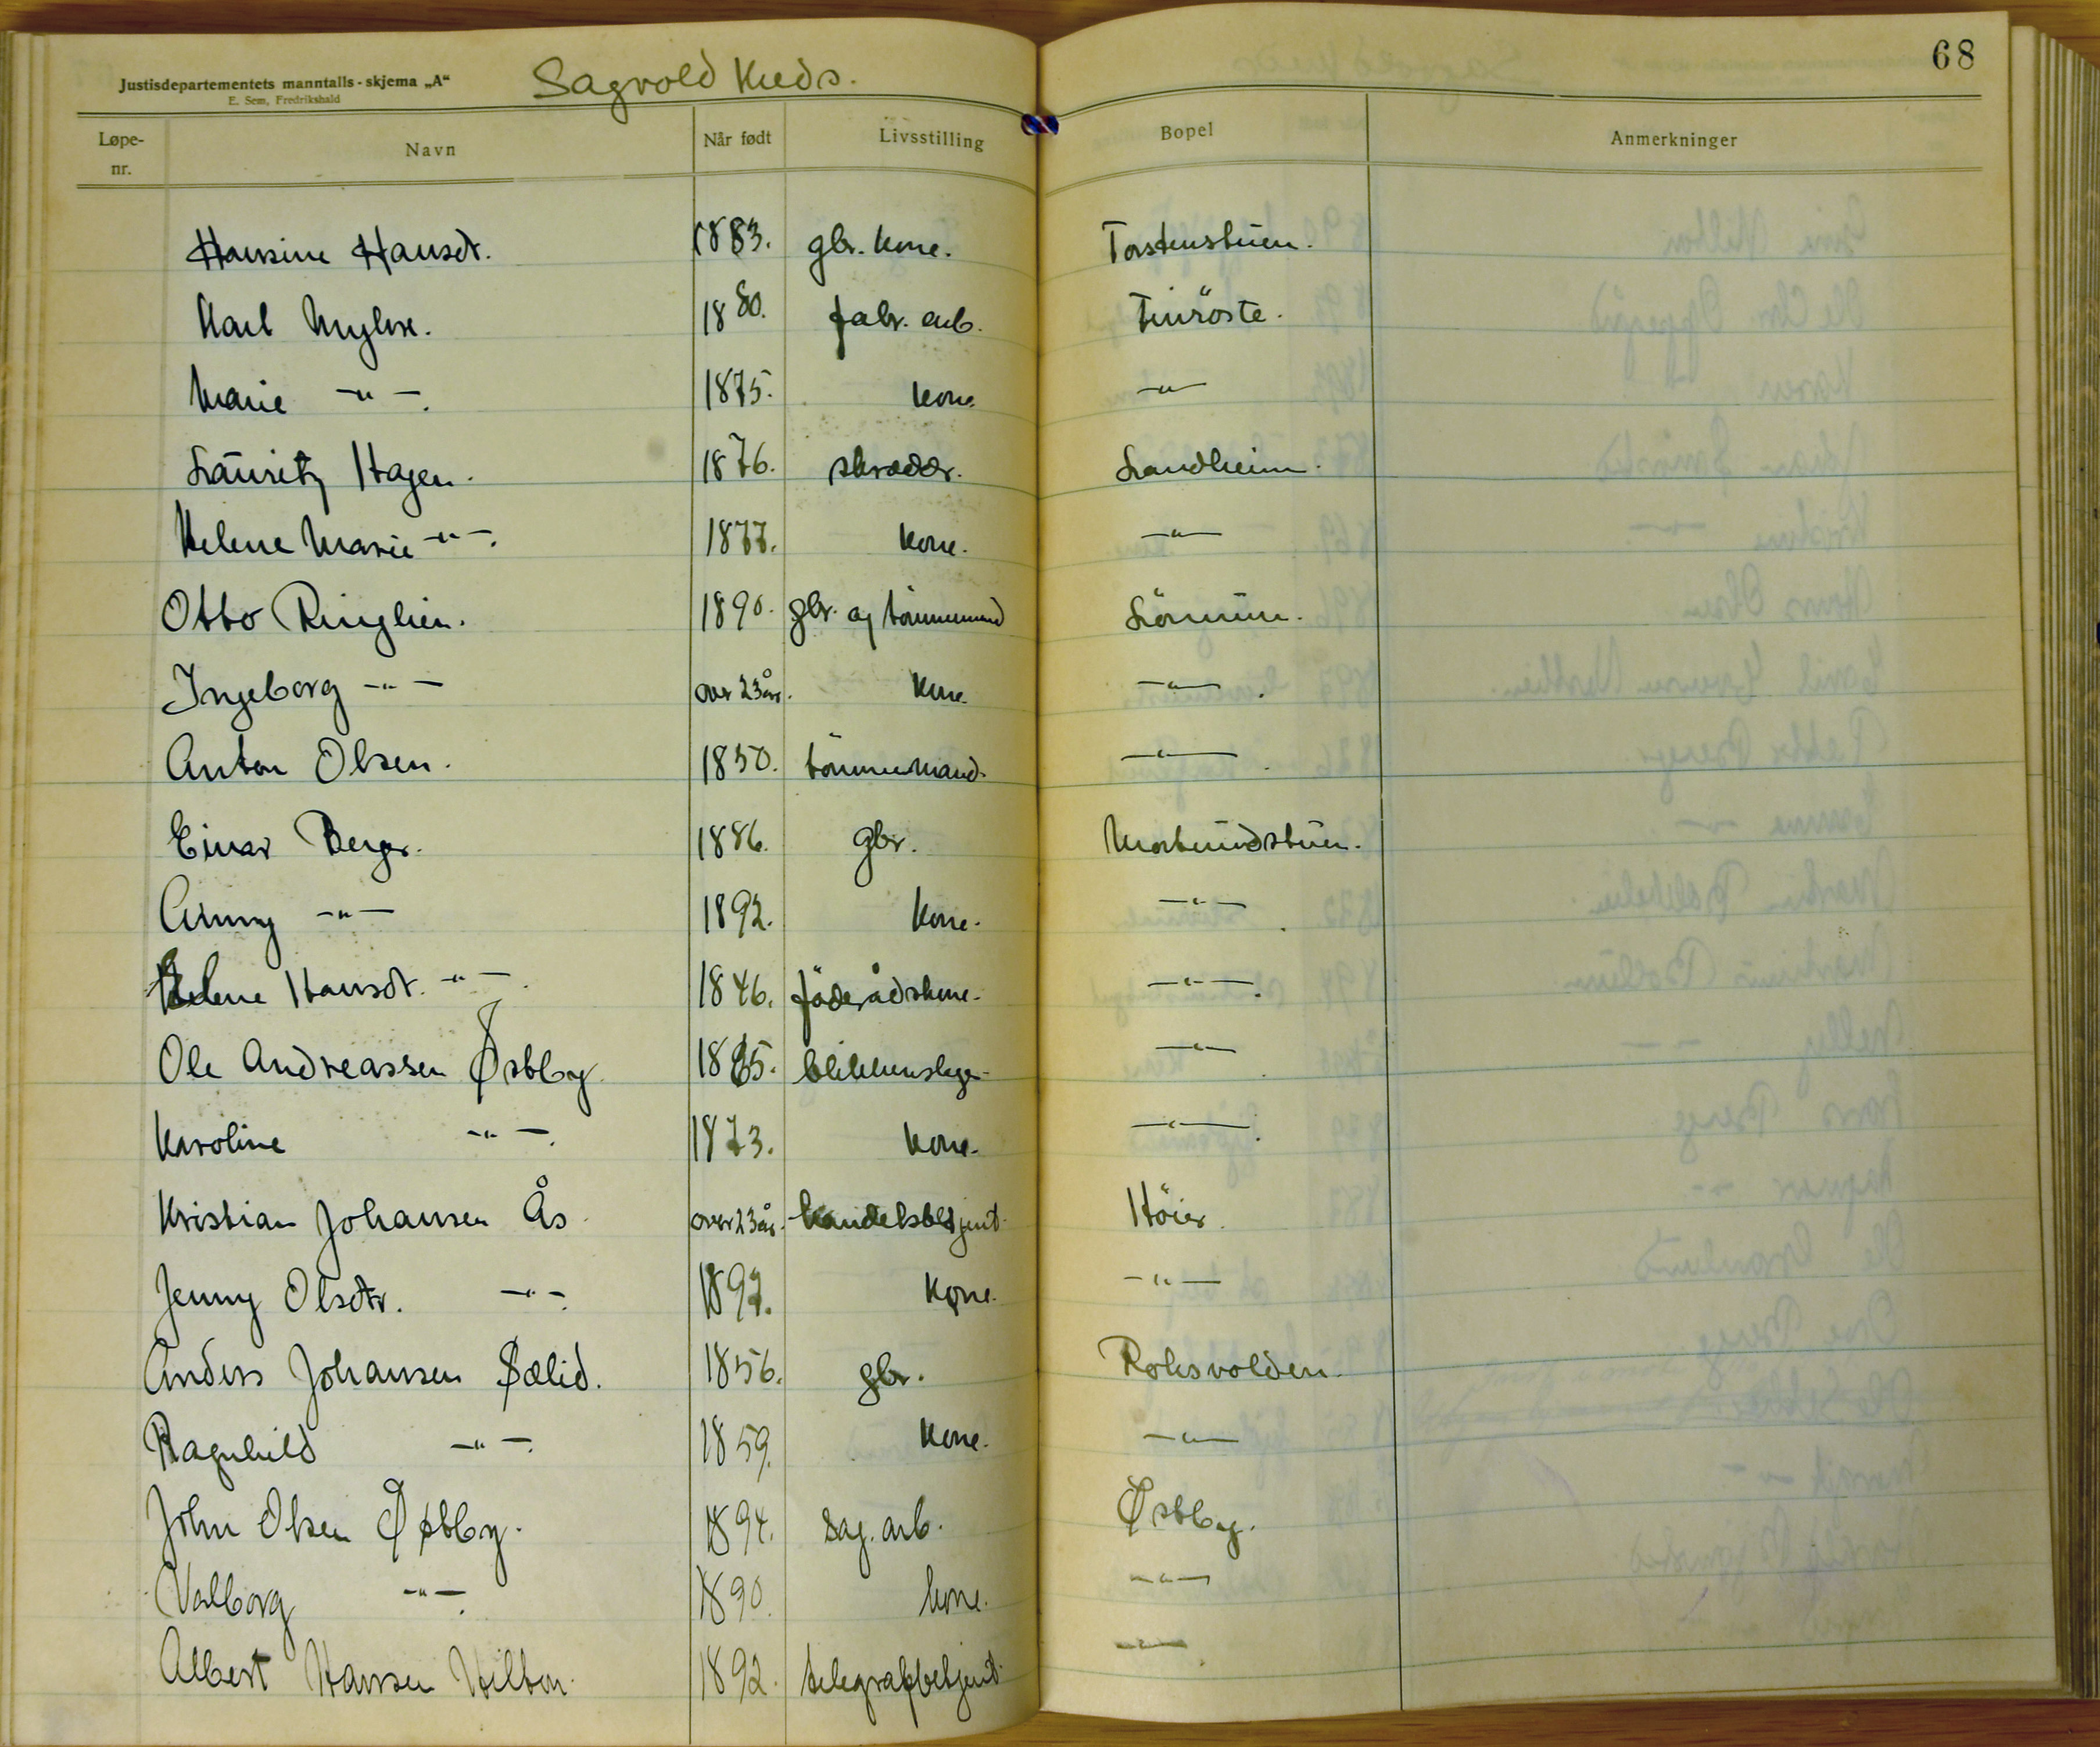 68
Justisdepartementets manntalls-skjema „A“ Sagvold Kreds.
E. Sem, Fredrikshald
Løpe-nr. Navn Når født Livsstilling Bopel Anmerkninger
Hansine Hansdt. 1883. gbr. kone. Torstenstuen.
Karl Myhre. 1880. fabr. arb. Finröste.
Marie —"—. 1875. kone —"—
Lauritz Hagen. 1876. skrædder. Landheim.
Helene Marie —"—. 1877. kone. —"—
Otto Ringlien. 1890. gbr. og tömmermand
Ingeborg —"— over 23 år. kone. —"—.
Anton Olsen. 1850. tömmermand. —"—.
Einar Berger. 1886. gbr.
Anny —"— 1892. kone. —"—.
Helene Hansdt. —"—. 1846. föderådskone. —"—.
Ole Andreassen Østby 1865. blikkenslager —"—.
Karoline —"—. 1873. kone. —"—.
Kristian Johansen Ås over 23 år. handelsbetjent Höier.
Jenny Olsdtr. —"—. 1897. kone. —"—
Anders Johansen Sælid. 1856. gbr. Roksvolden.
Ragnhild —"—. 1859. kone. —"—
John Olsen Østby. 1894. sag. arb. Østby.
Valborg —"—. 1890. kone. —"—
Albert Hansen Hilton. 1892. telegrafbetjent. —"—.